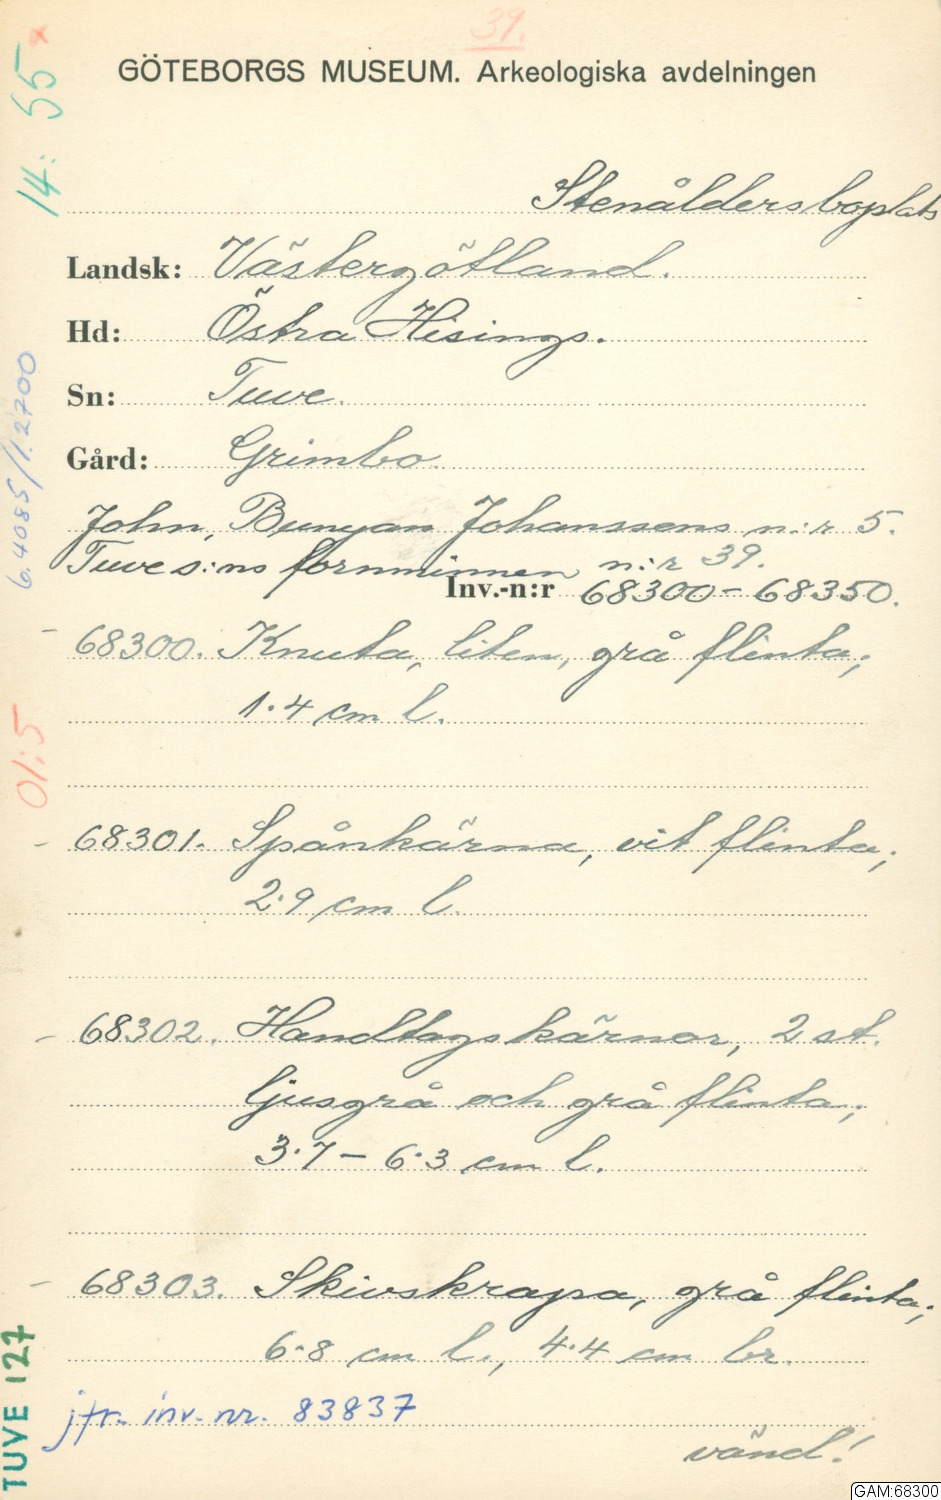 39.
GÖTEBORGS MUSEUM. Arkeologiska avdelningen
Stenåldersboplats
Landsk: Västergötland.
Hd: Östra Hisings.
Sn: Tuve.
Gård: Grimbo.
John, Bunyan Johanssens n:r 5.
Tuve s:ns fornminnen n:r 39.
Inv.-n:r 68300-68350.
68300. Knuta, liten, grå flinta;
1.4 cm l.
68301. Spånkärna, vit flinta;
2.9 cm l.
68302. Handtagskärnor, 2 st.
ljusgrå och grå flinta;
3.7 – 6.3 cm l.
68303. Skivskrapa, grå flinta;
6.8 cm l., 4.4 cm br.
jfr. inv. nr. 83837
vänd!
14: 55 x
6.4085/1.2700
01:5
TUVE 127
GAM:68300